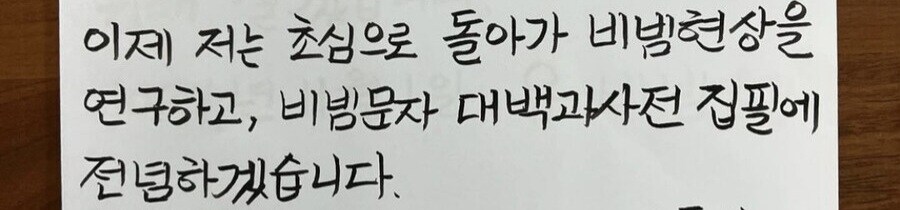 이제 저는 초심으로 돌아가 비빔현상을
연구하고, 비빔문자 대백과사전 집필에
전념하겠습니다.